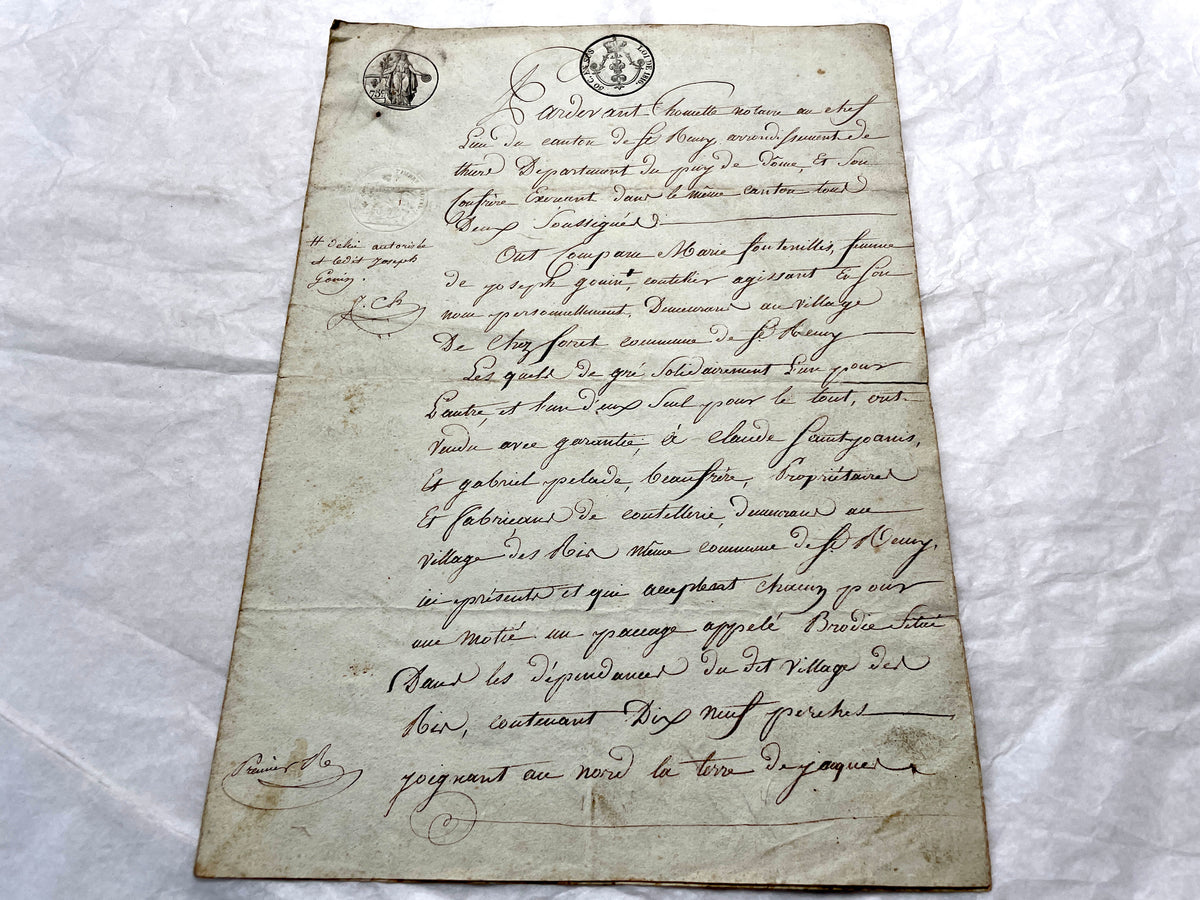 75c
50 C. EN SUS
LOI DE 1816
Pardevant Chomette notaire au chef
Lieu du canton de St Remy arrondissement de
thiers Département du puy de dôme, Et Son
Confrère Exerçant dans le même canton tous
Deux Soussignés
Ont Comparu Marie fontenilles, femme
de joseph gouin #, coutelier agissant En Son
nom personnellement, Demeurans au village
De Chez foret commune de St Remy
Les quels de gré Solidairement L'un pour
L'autre, et l'un d'eux Seul pour le tout, ont
Vendu avec garantie, à Claude Saintjoanis,
Et gabriel pelade, beaufrère, Propriétaires
Et fabriçans de coutellerie, demeurans au
village des Ris même commune de St Remy,
ici présents et qui acceptent chacun pour
une motié un paccage appelé Brodie Situé
Dans les dépendances du dit village des
Ris, contenant Dix neuf perches
joignant au nord la terre de jaques
# de lui autorisée
et ledit Joseph
Gouin.
J. Ch
Premier R